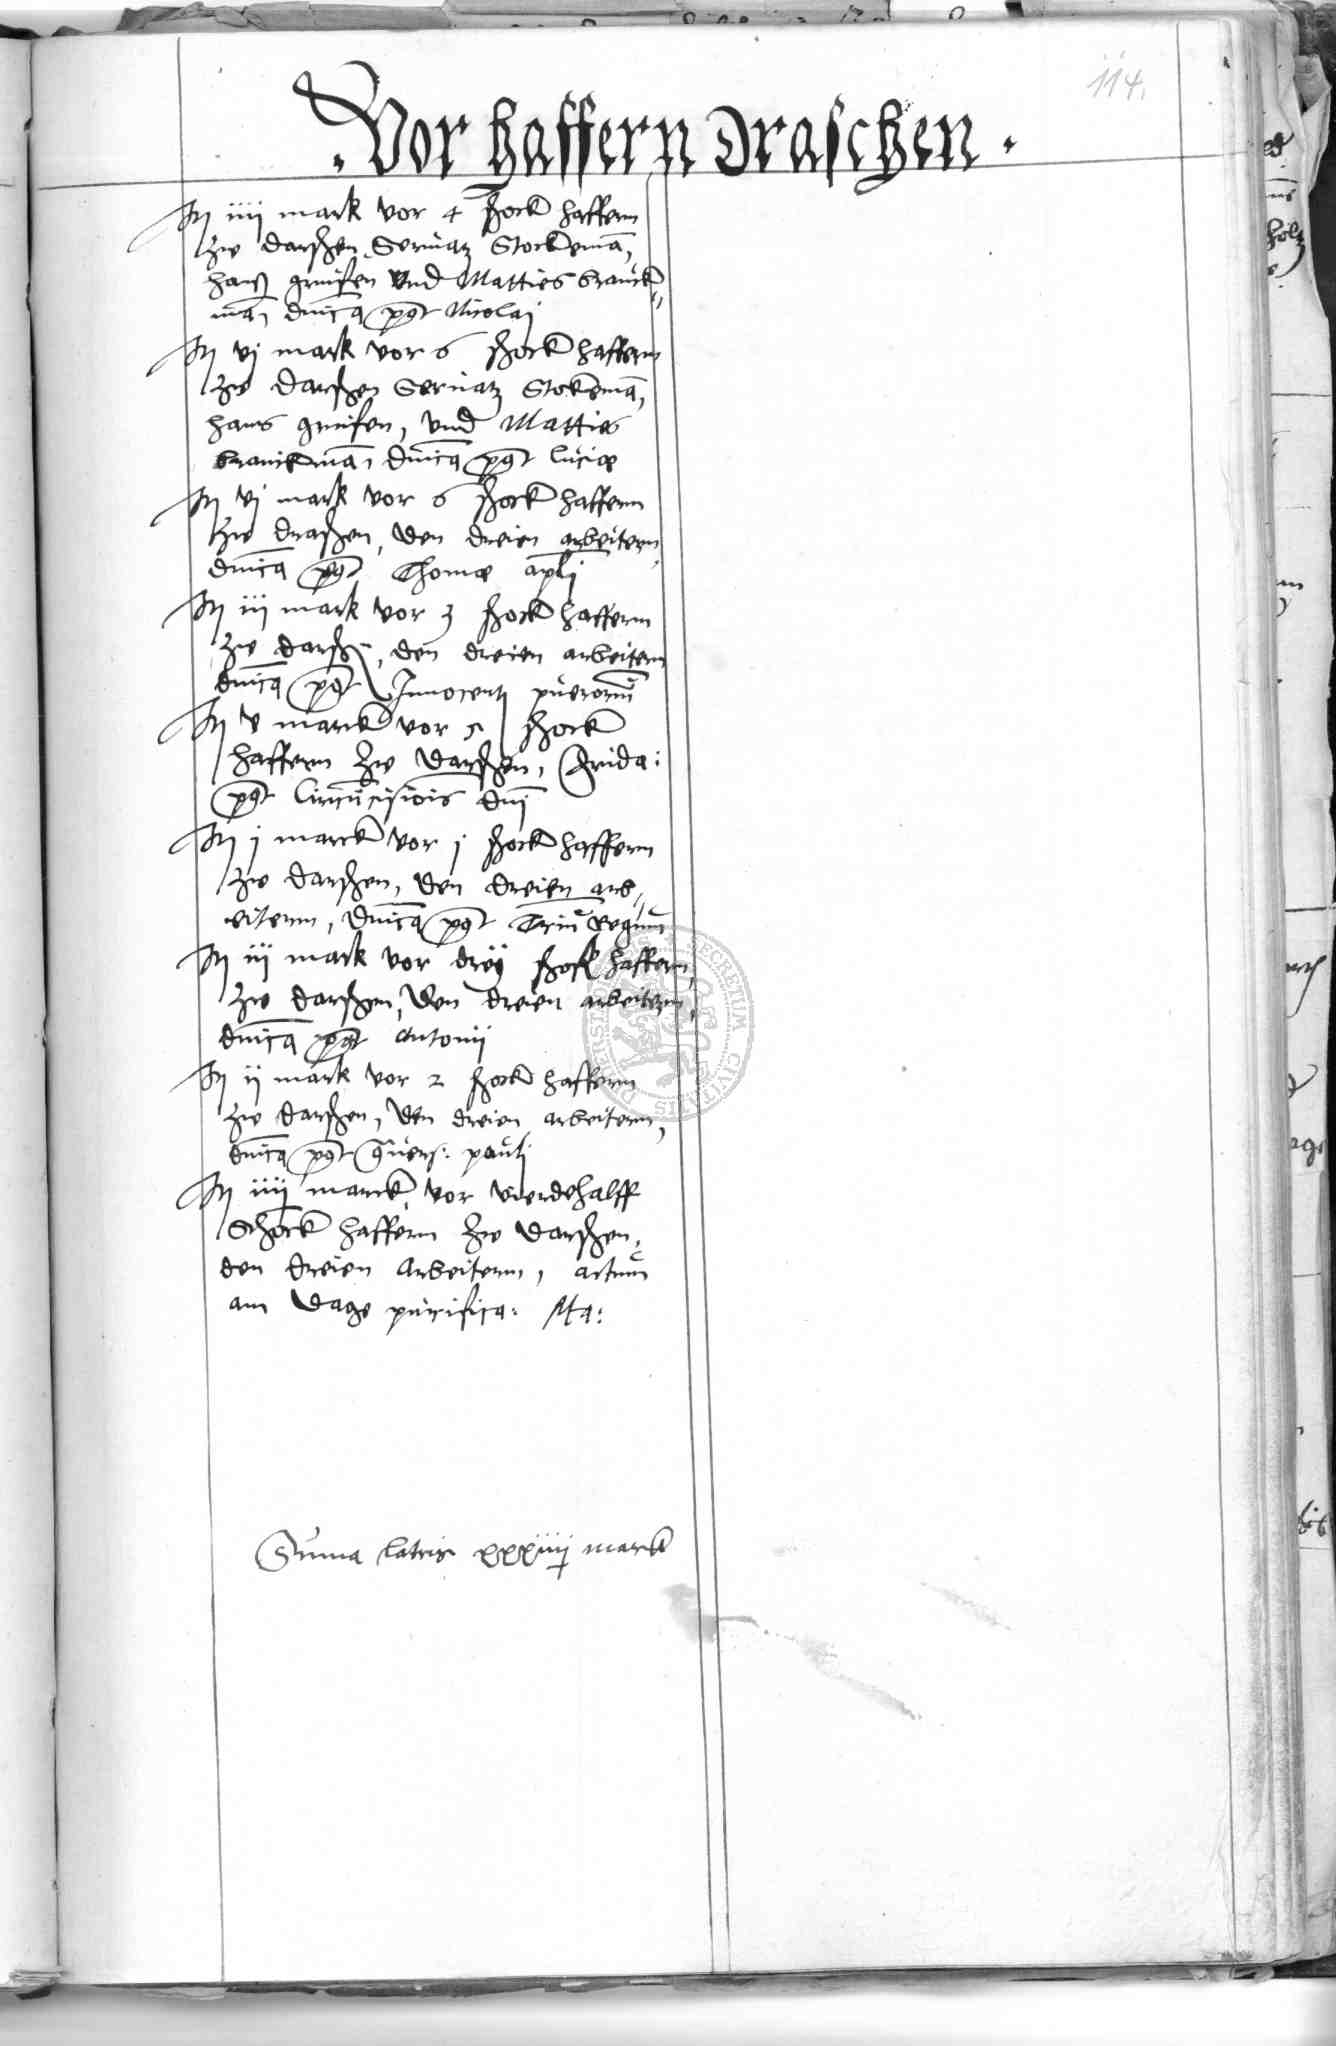 114.
. Vor haffern Draschen .
Itz iiij mark vor 4 schock haffern
zw darschen Seruatz Stockmā,
hanß greisen vnd Matties brauck-
mā, dnica post Nicolaj
Itz vj mark vor 6 schock haffern
zw darschen Seruatz Stockmā,
hans greisen, vnd Matties
brauckmā, dnica post luciæ
Itz vj mark vor 6 schock haffern
zw draschen, den dreien arbeitern
dnica post Thomæ apli
Itz iij mark vor 3 schock haffern
zw darschē, den dreien arbeitern
dnica post Innocentz puerorum
Itz v marck vor 5 schock
haffern zw darschen, frida:
post Circucisiois dni
Itz j marck vor j schock haffern
zw darschen, den dreien arb-
eitern, dnica post Triu Regum
Itz iij mark vor drey schock haffern,
zw darschen, den dreien arbeitern,
dnica post Antonij
Itz ij mark vor 2 schock haffern
zw darschen, den dreien arbeitern,
dnica post Conuers: paulj
Itz iiij marck vor vierdehalff
Schock haffern zw darschen,
den dreien Arbeitern, actum
am dage purifica: Ma:
Suma latris xxxiiij marck
SECRETUM CIVITATIS